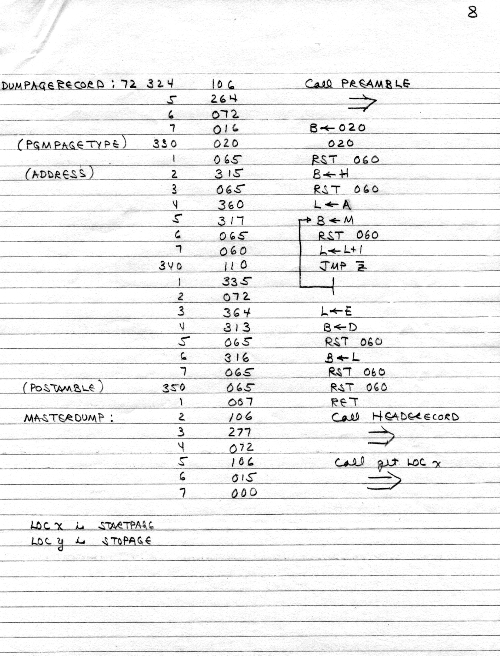 8
DUMPAGERECORD: 72 324 106 Call PREAMBLE
5 264
6 072
7 016 B←020
(PGMPAGETYPE) 330 020 020
1 065 RST 060
(ADDRESS) 2 315 B←H
3 065 RST 060
4 360 L←A
5 317 B←M
6 065 RST 060
7 060 L←L+1
340 110 JMP Z̅
1 335
2 072
3 364 L←E
4 313 B←D
5 065 RST 060
6 316 B←L
7 065 RST 060
(POSTAMBLE) 350 065 RST 060
1 007 RET
MASTERDUMP: 2 106 Call HEADERECORD
3 277
4 072
5 106 Call get LOC x
6 015
7 000
LOC x is STARTPAGE
LOC y is STOPAGE